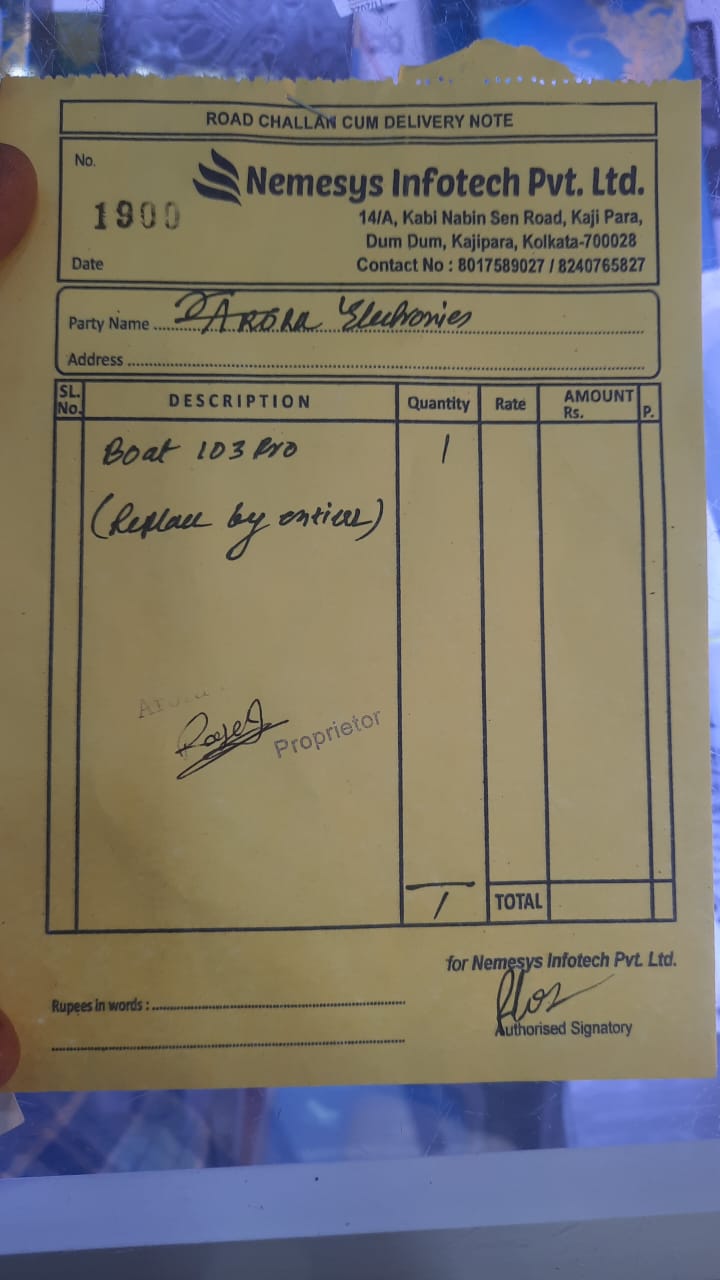 ROAD CHALLAN CUM DELIVERY NOTE
No.
1900
Nemesys Infotech Pvt. Ltd.
14/A, Kabi Nabin Sen Road, Kaji Para,
Dum Dum, Kajipara, Kolkata-700028
Date
Contact No : 8017589027 / 8240765827
Party Name Arora Electronics
Address
SL. No. DESCRIPTION Quantity Rate AMOUNT Rs. P.
Boat 103 Pro 1
(Replace by
Proprietor
1 TOTAL
for Nemesys Infotech Pvt. Ltd.
Rupees in words :
Authorised Signatory